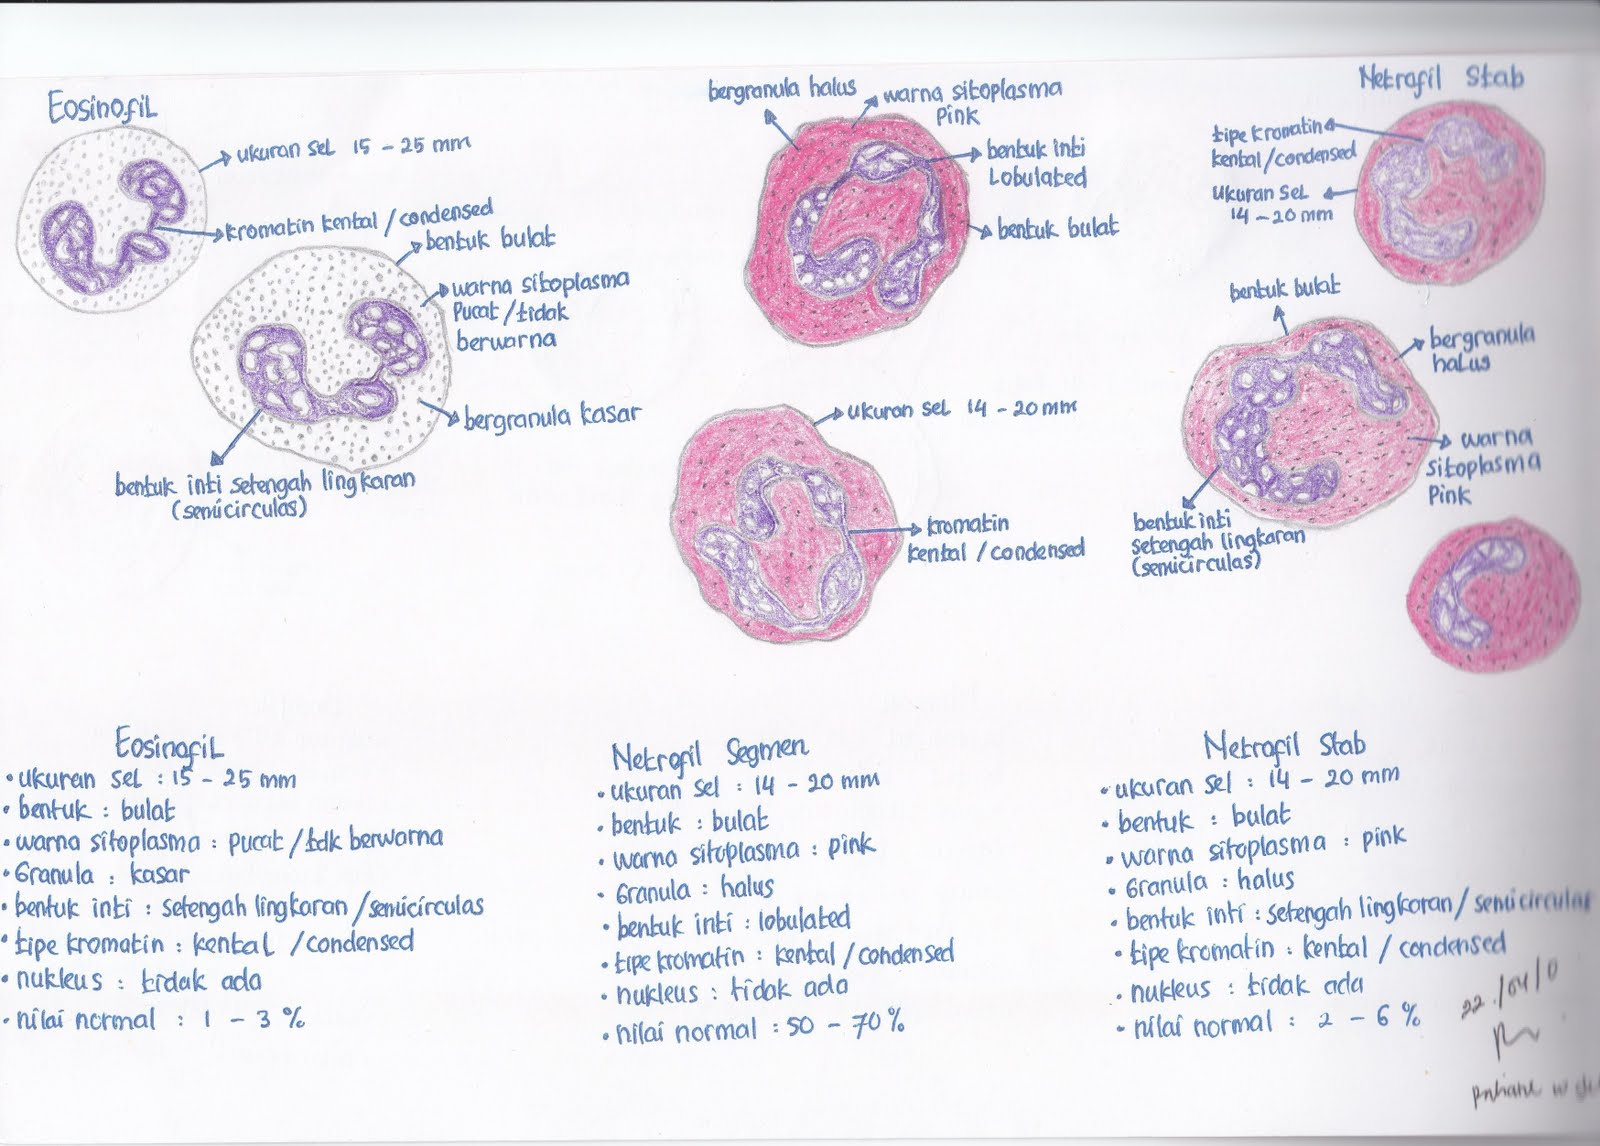 Eosinofil
ukuran sel 15 - 25 mm
kromatin kental / condensed
bentuk bulat
warna sitoplasma
Pucat / tidak
berwarna
bergranula kasar
bentuk inti setengah lingkaran
(semicirculas)
bergranula halus
warna sitoplasma
Pink
bentuk inti
Lobulated
bentuk bulat
ukuran sel 14 - 20 mm
kromatin
kental / condensed
Netrofil Stab
tipe kromatin
kental / condensed
ukuran sel
14 - 20 mm
bentuk bulat
bergranula
halus
warna
sitoplasma
Pink
bentuk inti
setengah lingkaran
(semicirculas)
Eosinofil
• ukuran sel : 15 - 25 mm
• bentuk : bulat
• warna sitoplasma : pucat / tdk berwarna
• Granula : kasar
• bentuk inti : setengah lingkaran / semicirculas
• tipe kromatin : kental / condensed
• nukleus : tidak ada
• nilai normal : 1 - 3 %
Netrofil Segmen
• ukuran sel : 14 - 20 mm
• bentuk : bulat
• warna sitoplasma : pink
• Granula : halus
• bentuk inti : lobulated
• tipe kromatin : kental / condensed
• nukleus : tidak ada
• nilai normal : 50 - 70 %
Netrofil Stab
• ukuran sel : 14 - 20 mm
• bentuk : bulat
• warna sitoplasma : pink
• Granula : halus
• bentuk inti : setengah lingkaran / semicirculas
• tipe kromatin : kental / condensed
• nukleus : tidak ada
• nilai normal : 2 - 6 %